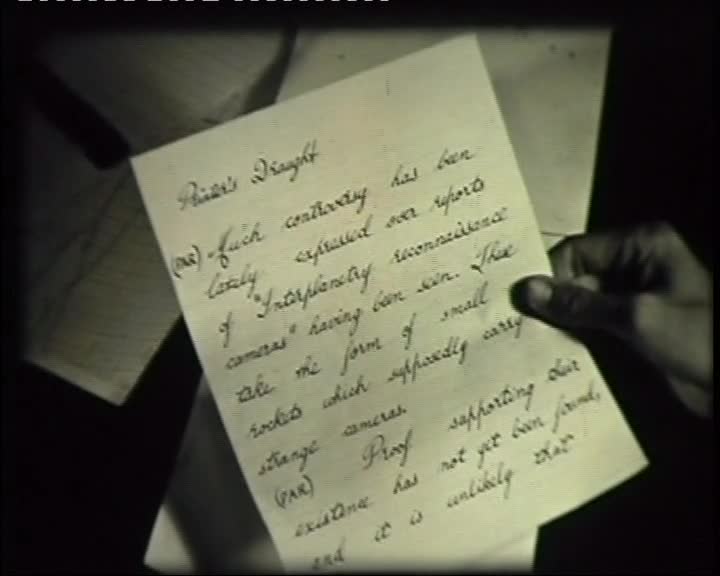 Printer's Draught
(PAR) "Much controversy has been
lately expressed over reports
of "Interplanetry reconnaissance
cameras" having been seen. These
take the form of small
rockets which supposedly carry
strange cameras.
(PAR) Proof supporting their
existence has not yet been found,
and it is unlikely that